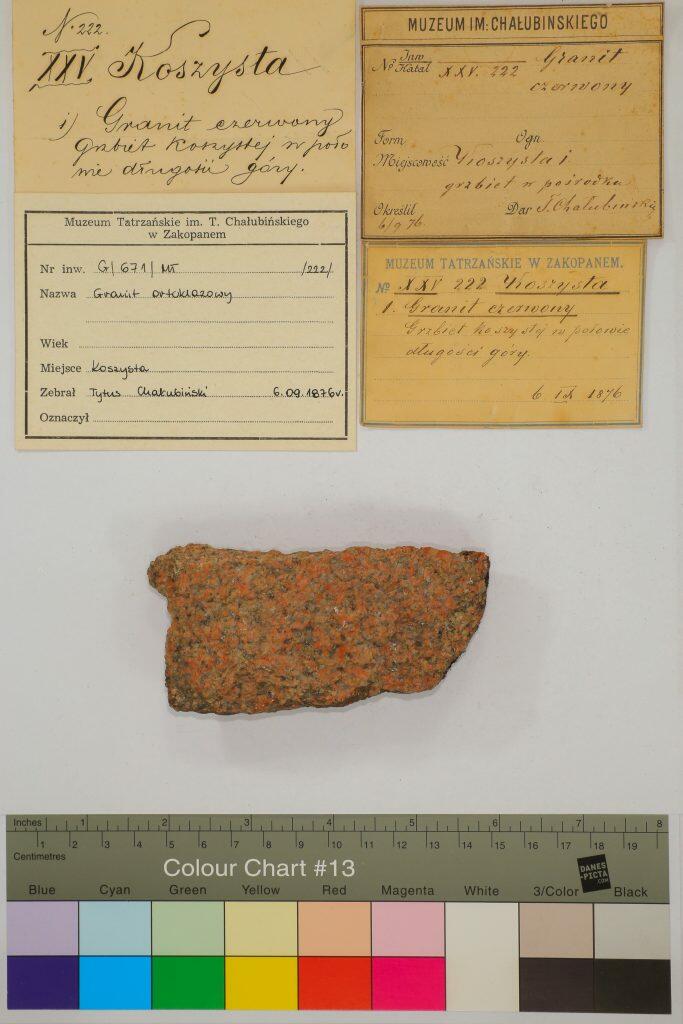 N. 222.
XXV. Koszysta
1) Granit czerwony
grzbiet Koszystej w poło
wie długości góry.
MUZEUM IM: CHAŁUBINSKIEGO
No Inw Katal XXV. 222 Granit
czerwony
Form Ogn.
Miejscowość Koszysta i
grzbiet w pośrodku
Określił Dar T. Chałubinskiej
6/9 76.
Muzeum Tatrzańskie im. T. Chałubińskiego
w Zakopanem
Nr inw. G/671/MT /222/
Nazwa Granit ortoklazowy
Wiek
Miejsce Koszysta
Zebrał Tytus Chałubiński 6.09.1876r.
Oznaczył
MUZEUM TATRZAŃSKIE W ZAKOPANEM.
No XXV 222 Koszysta
1. Granit czerwony
Grzbiet koszystej w połowie
długości góry.
6 IX 1876
Inches 1 2 3 4 5 6 7 8
1 2 3 4 5 6 7 8 9 10 11 12 13 14 15 16 17 18 19
Centimetres
Colour Chart #13
DANES
-PICTA
.COM
Blue Cyan Green Yellow Red Magenta White 3/Color Black